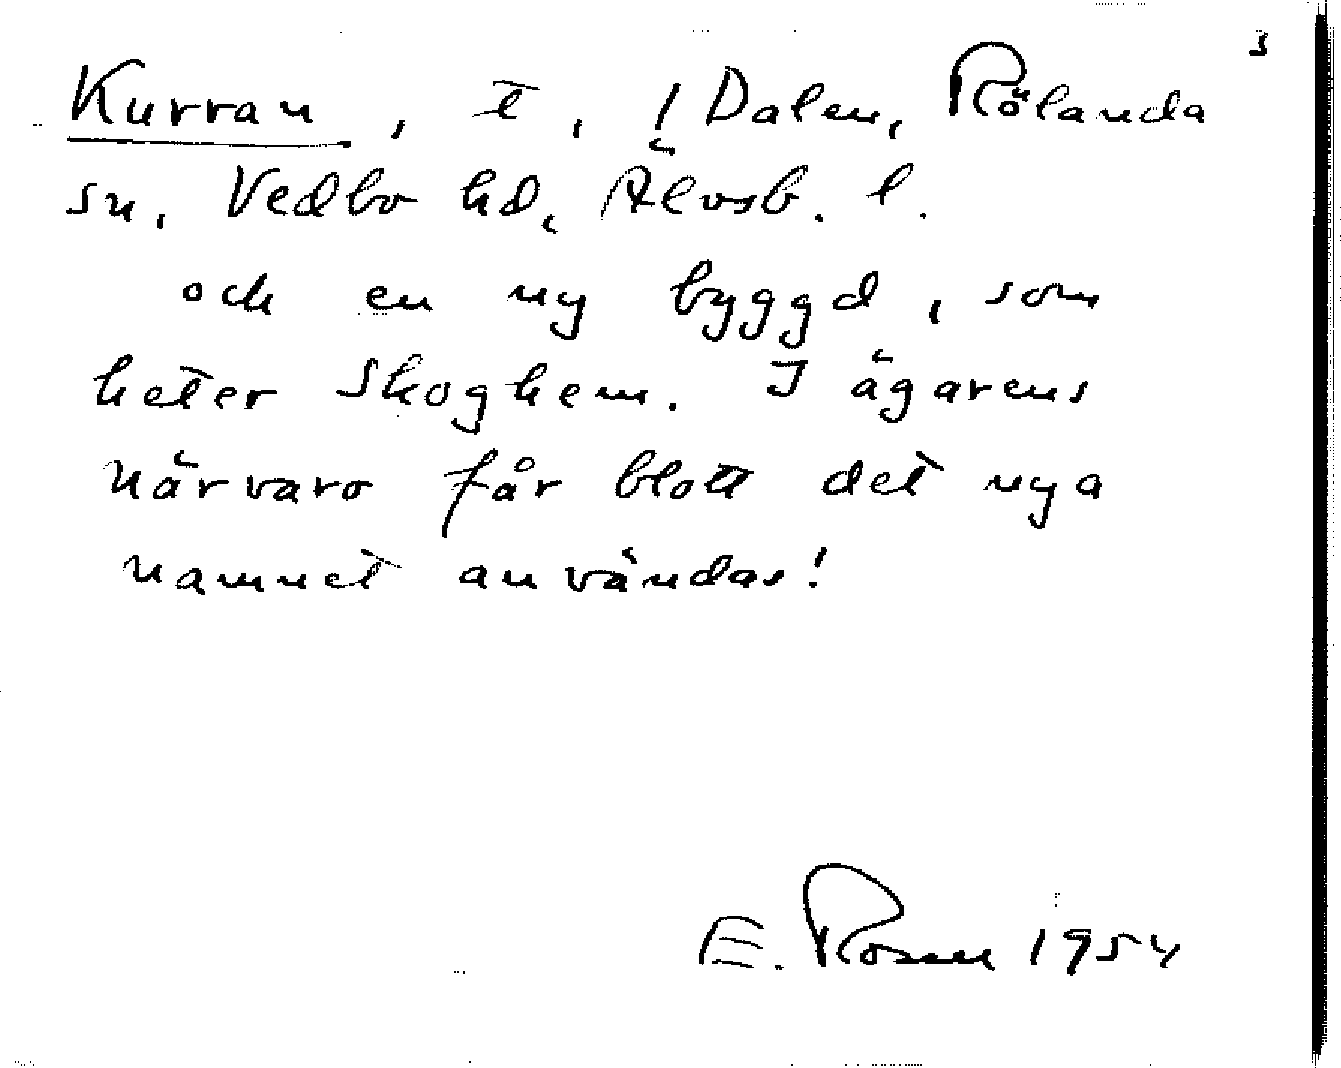 3
Kurran, t, / Dalen, Rölanda
sn, Vedbo hd, Älvsb. l.
och en ny byggd, som
heter Skoghem. I ägarens
närvaro får blott det nya
namnet användas!
E. Rosen 1954